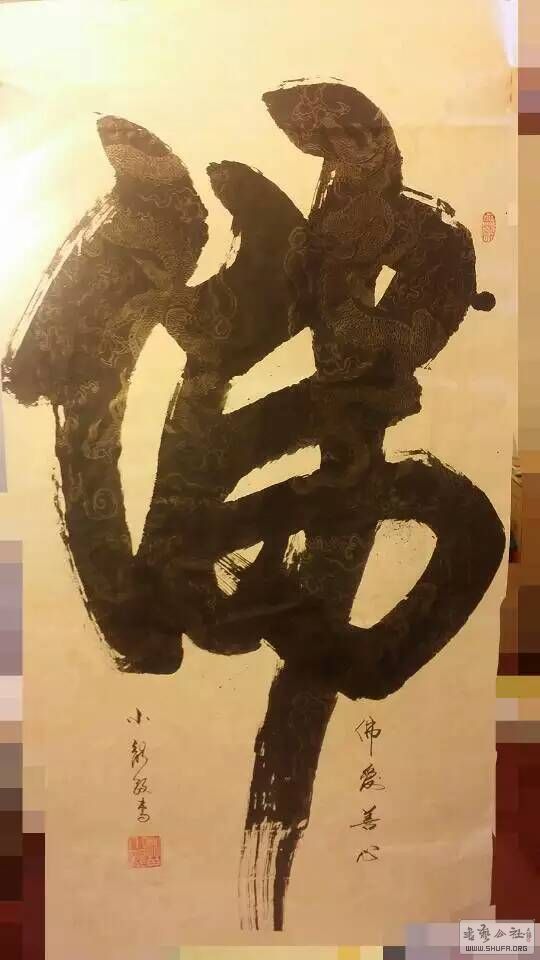 佛
佛爱善心
小龍敬書
书艺公社
WWW.SHUFA.ORG